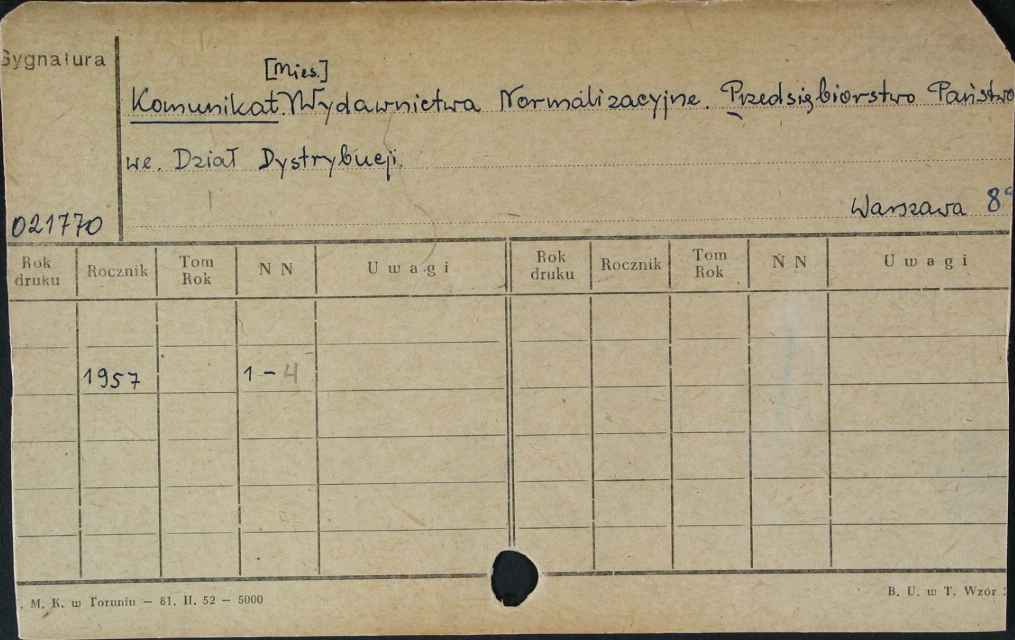 Sygnatura
[Mies.]
Komunikat. Wydawnictwa Normalizacyjne. Przedsiębiorstwo Państwo
we. Dział Dystrybucji.
Warszawa 8°
021770
Rok druku Rocznik Tom Rok N N Uwagi Rok druku Rocznik Tom Rok N N Uwagi
1957 1-4
M. K. w Toruniu — 81. II. 52 — 5000
B. U. w T. Wzór